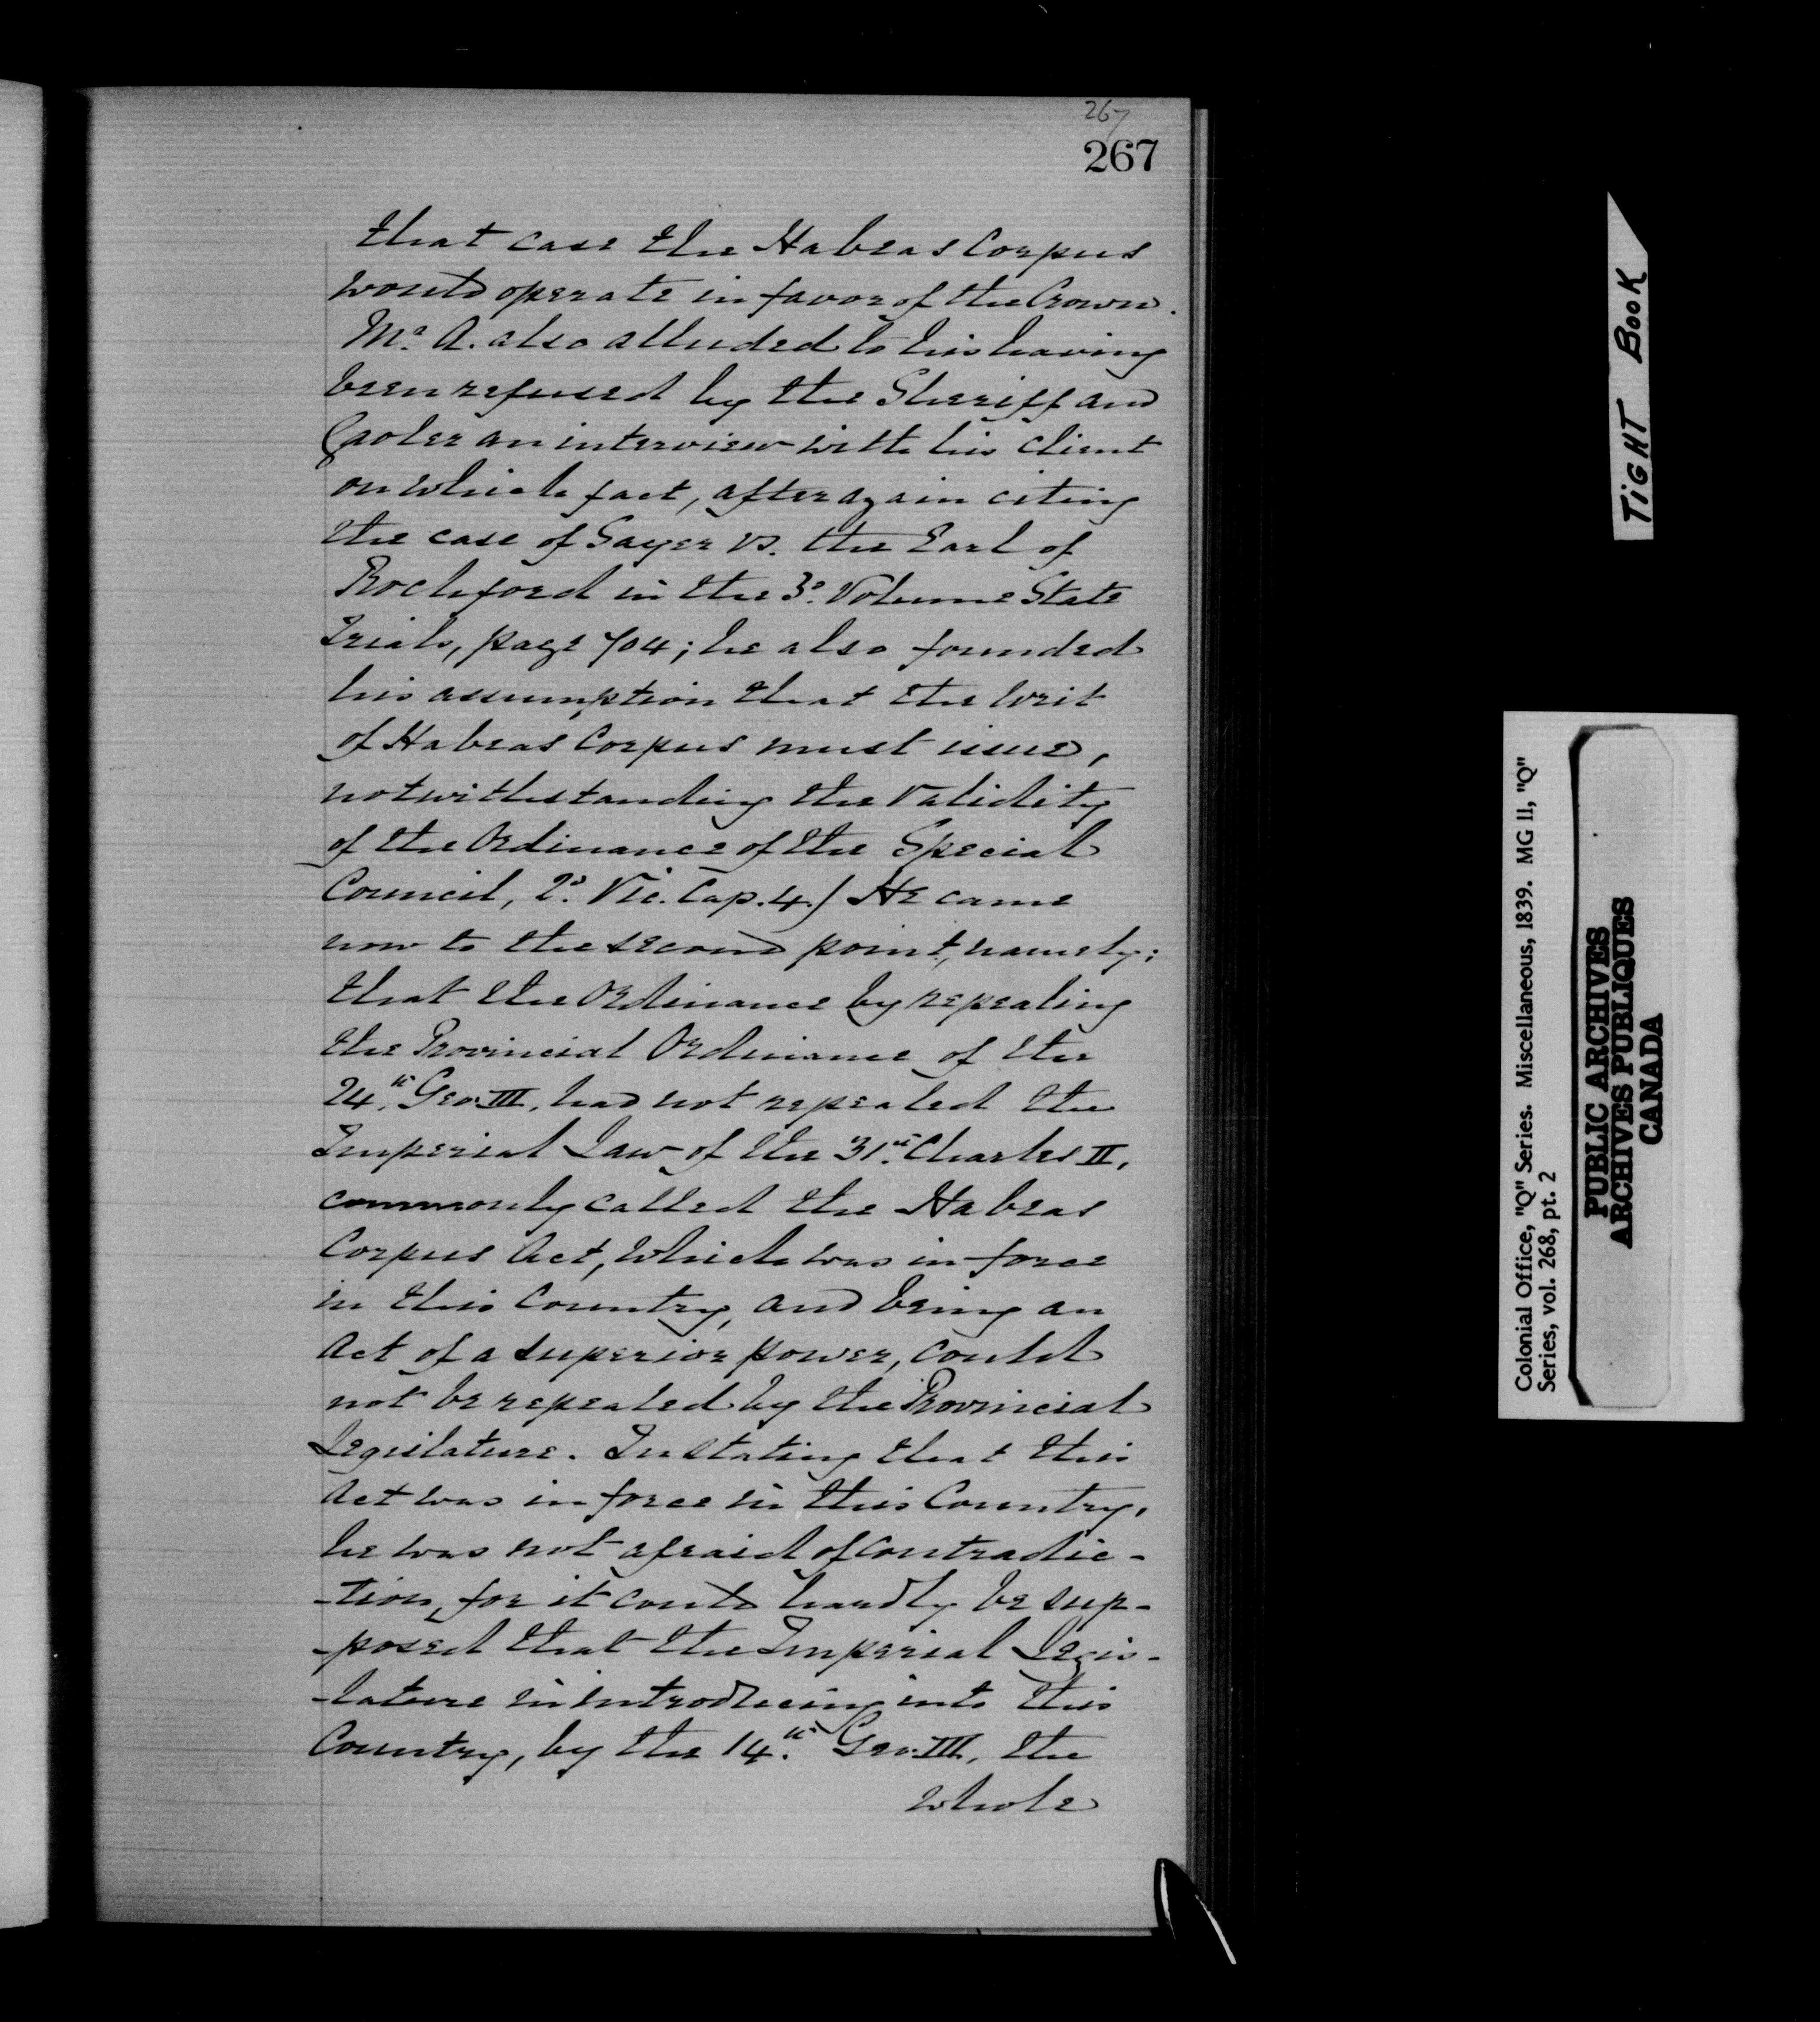 267
267
that case the Habeas Corpus
would operate in favor of the Crown.
Mr. A. also alluded to his having
been refused by the Sheriff and
Gaoler an interview with his client
on which fact, after again citing
the case of Sayer vs. the Earl of
Rochford in the 3d. Volume State
Trials, page 704; he also founded
his assumption that the Writ
of Habeas Corpus must issue,
notwithstanding the validity
of the Ordinance of the Special
Council, 2d. Vic. Cap. 4.) He came
now to the second point, namely:
that the Ordinance by repealing
the Provincial Ordinance of the
24th. Geo. III. had not repealed the
Imperial Law of the 31st. Charles II.
commonly called the Habeas
Corpus Act, which was in force
in this Country, and being an
Act of a superior power, could
not be repealed by the Provincial
Legislature. In stating that this
Act was in force in this Country,
he was not afraid of contradic-
-tion, for it could hardly be sup-
-posed that the Imperial Legis-
-lature in introducing into this
Country, by the 14th. Geo. III, the
whole
TIGHT BOOK
Colonial Office, "Q" Series. Miscellaneous, 1839. MG 11, "Q"
Series, vol. 268, pt. 2
PUBLIC ARCHIVES
ARCHIVES PUBLIQUES
CANADA